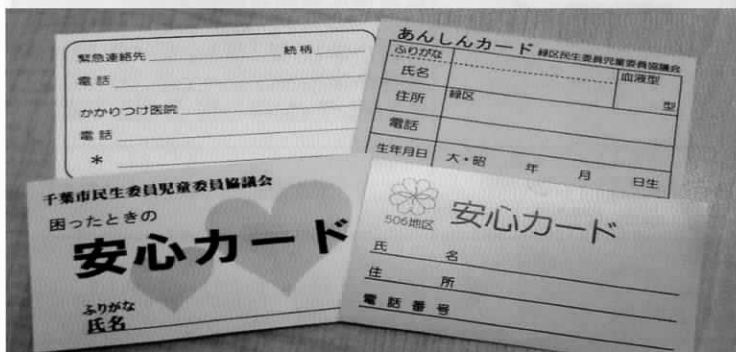 緊急連絡先 続柄
電話
かかりつけ医院
電話
*
あんしんカード 緑区民生委員児童委員協議会
ふりがな
氏名
血液型
型
住所 緑区
電話
生年月日 大・昭 年 月 日生
千葉市民生委員児童委員協議会
困ったときの
安心カード
ふりがな
氏名
506地区 安心カード
氏名
住所
電話番号